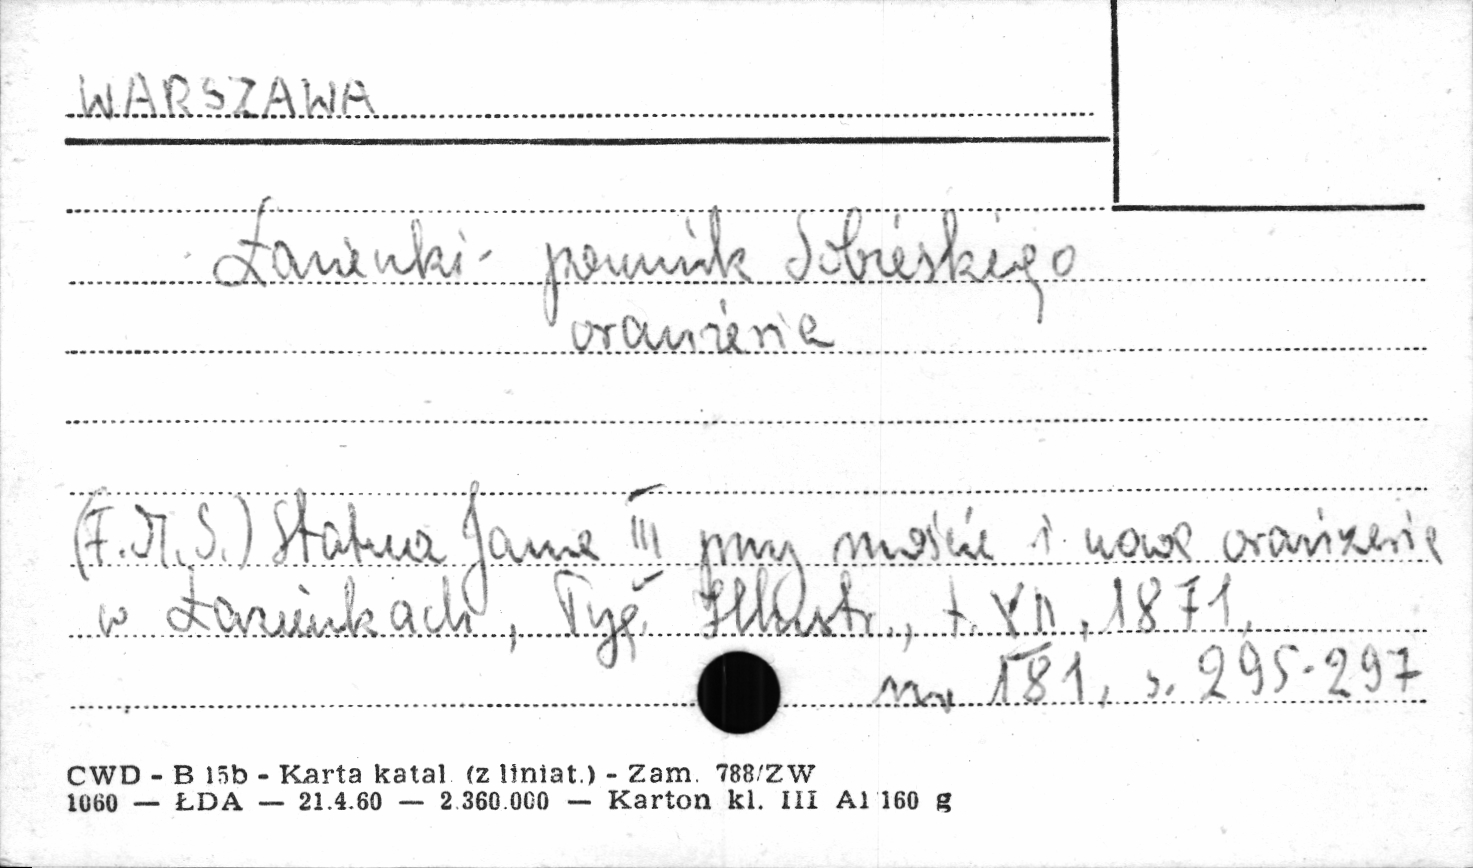 WARSZAWA
Łazienki - pomnik Sobieskiego
oranżeria
(F.M.S.) Statua Jana III przy moście i nowa oranżeria
w Łazienkach, Tyg. Illustr., t. VII, 1871,
nr 181, s. 295-297
CWD - B 15b - Karta katal. (z liniat.) - Zam. 788/ZW
1060 — ŁDA — 21.4.60 — 2.360.000 — Karton kl. III A1 160 g